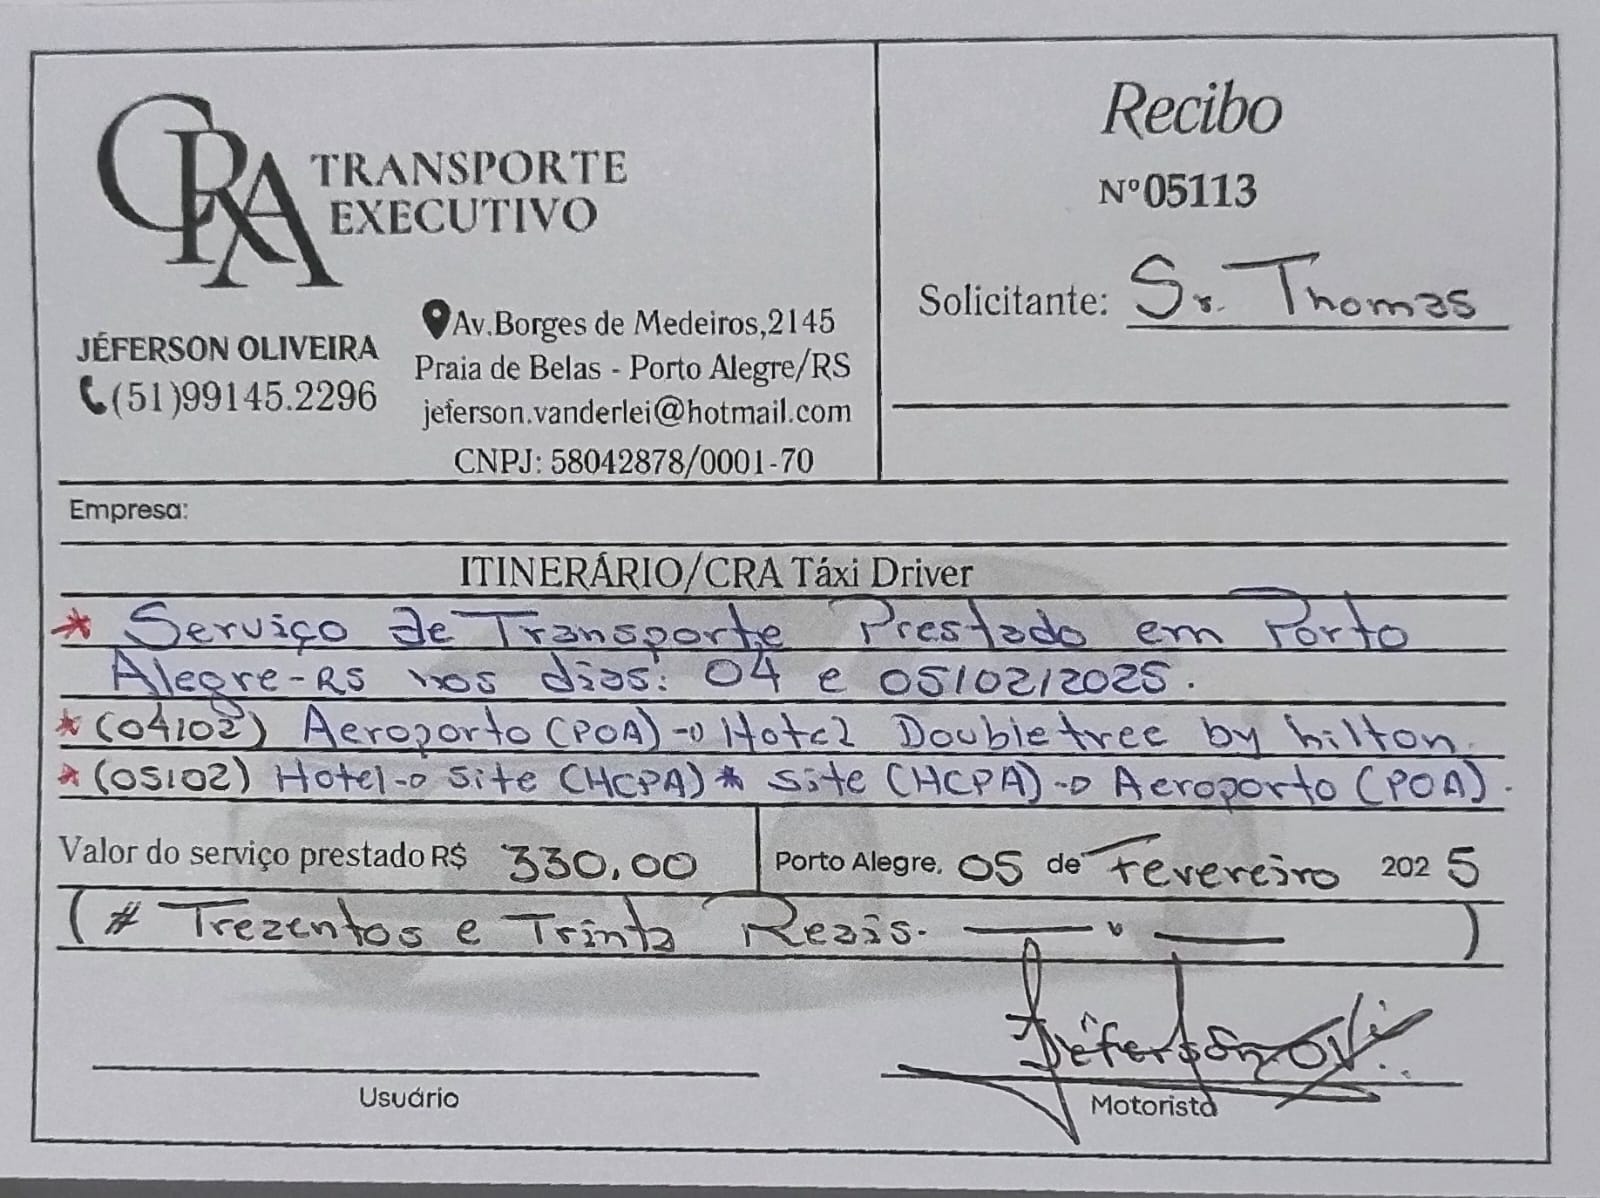 CRA TRANSPORTE
EXECUTIVO
JÉFERSON OLIVEIRA
(51)99145.2296
Av.Borges de Medeiros,2145
Praia de Belas - Porto Alegre/RS
jeferson.vanderlei@hotmail.com
CNPJ: 58042878/0001-70
Recibo
Nº05113
Solicitante: Sr. Thomas
Empresa:
ITINERÁRIO/CRA Táxi Driver
* Serviço de Transporte Prestado em Porto
Alegre-RS nos dias: 04 e 05/02/2025.
* (04/02) Aeroporto (POA) → Hotel Doubletree by hilton.
* (05/02) Hotel → Site (HCPA) * Site (HCPA) → Aeroporto (POA).
Valor do serviço prestado R$ 330,00
Porto Alegre, 05 de Fevereiro 2025
(# Trezentos e Trinta Reais. — " — )
Jéferson Oli..
Usuário
Motorista